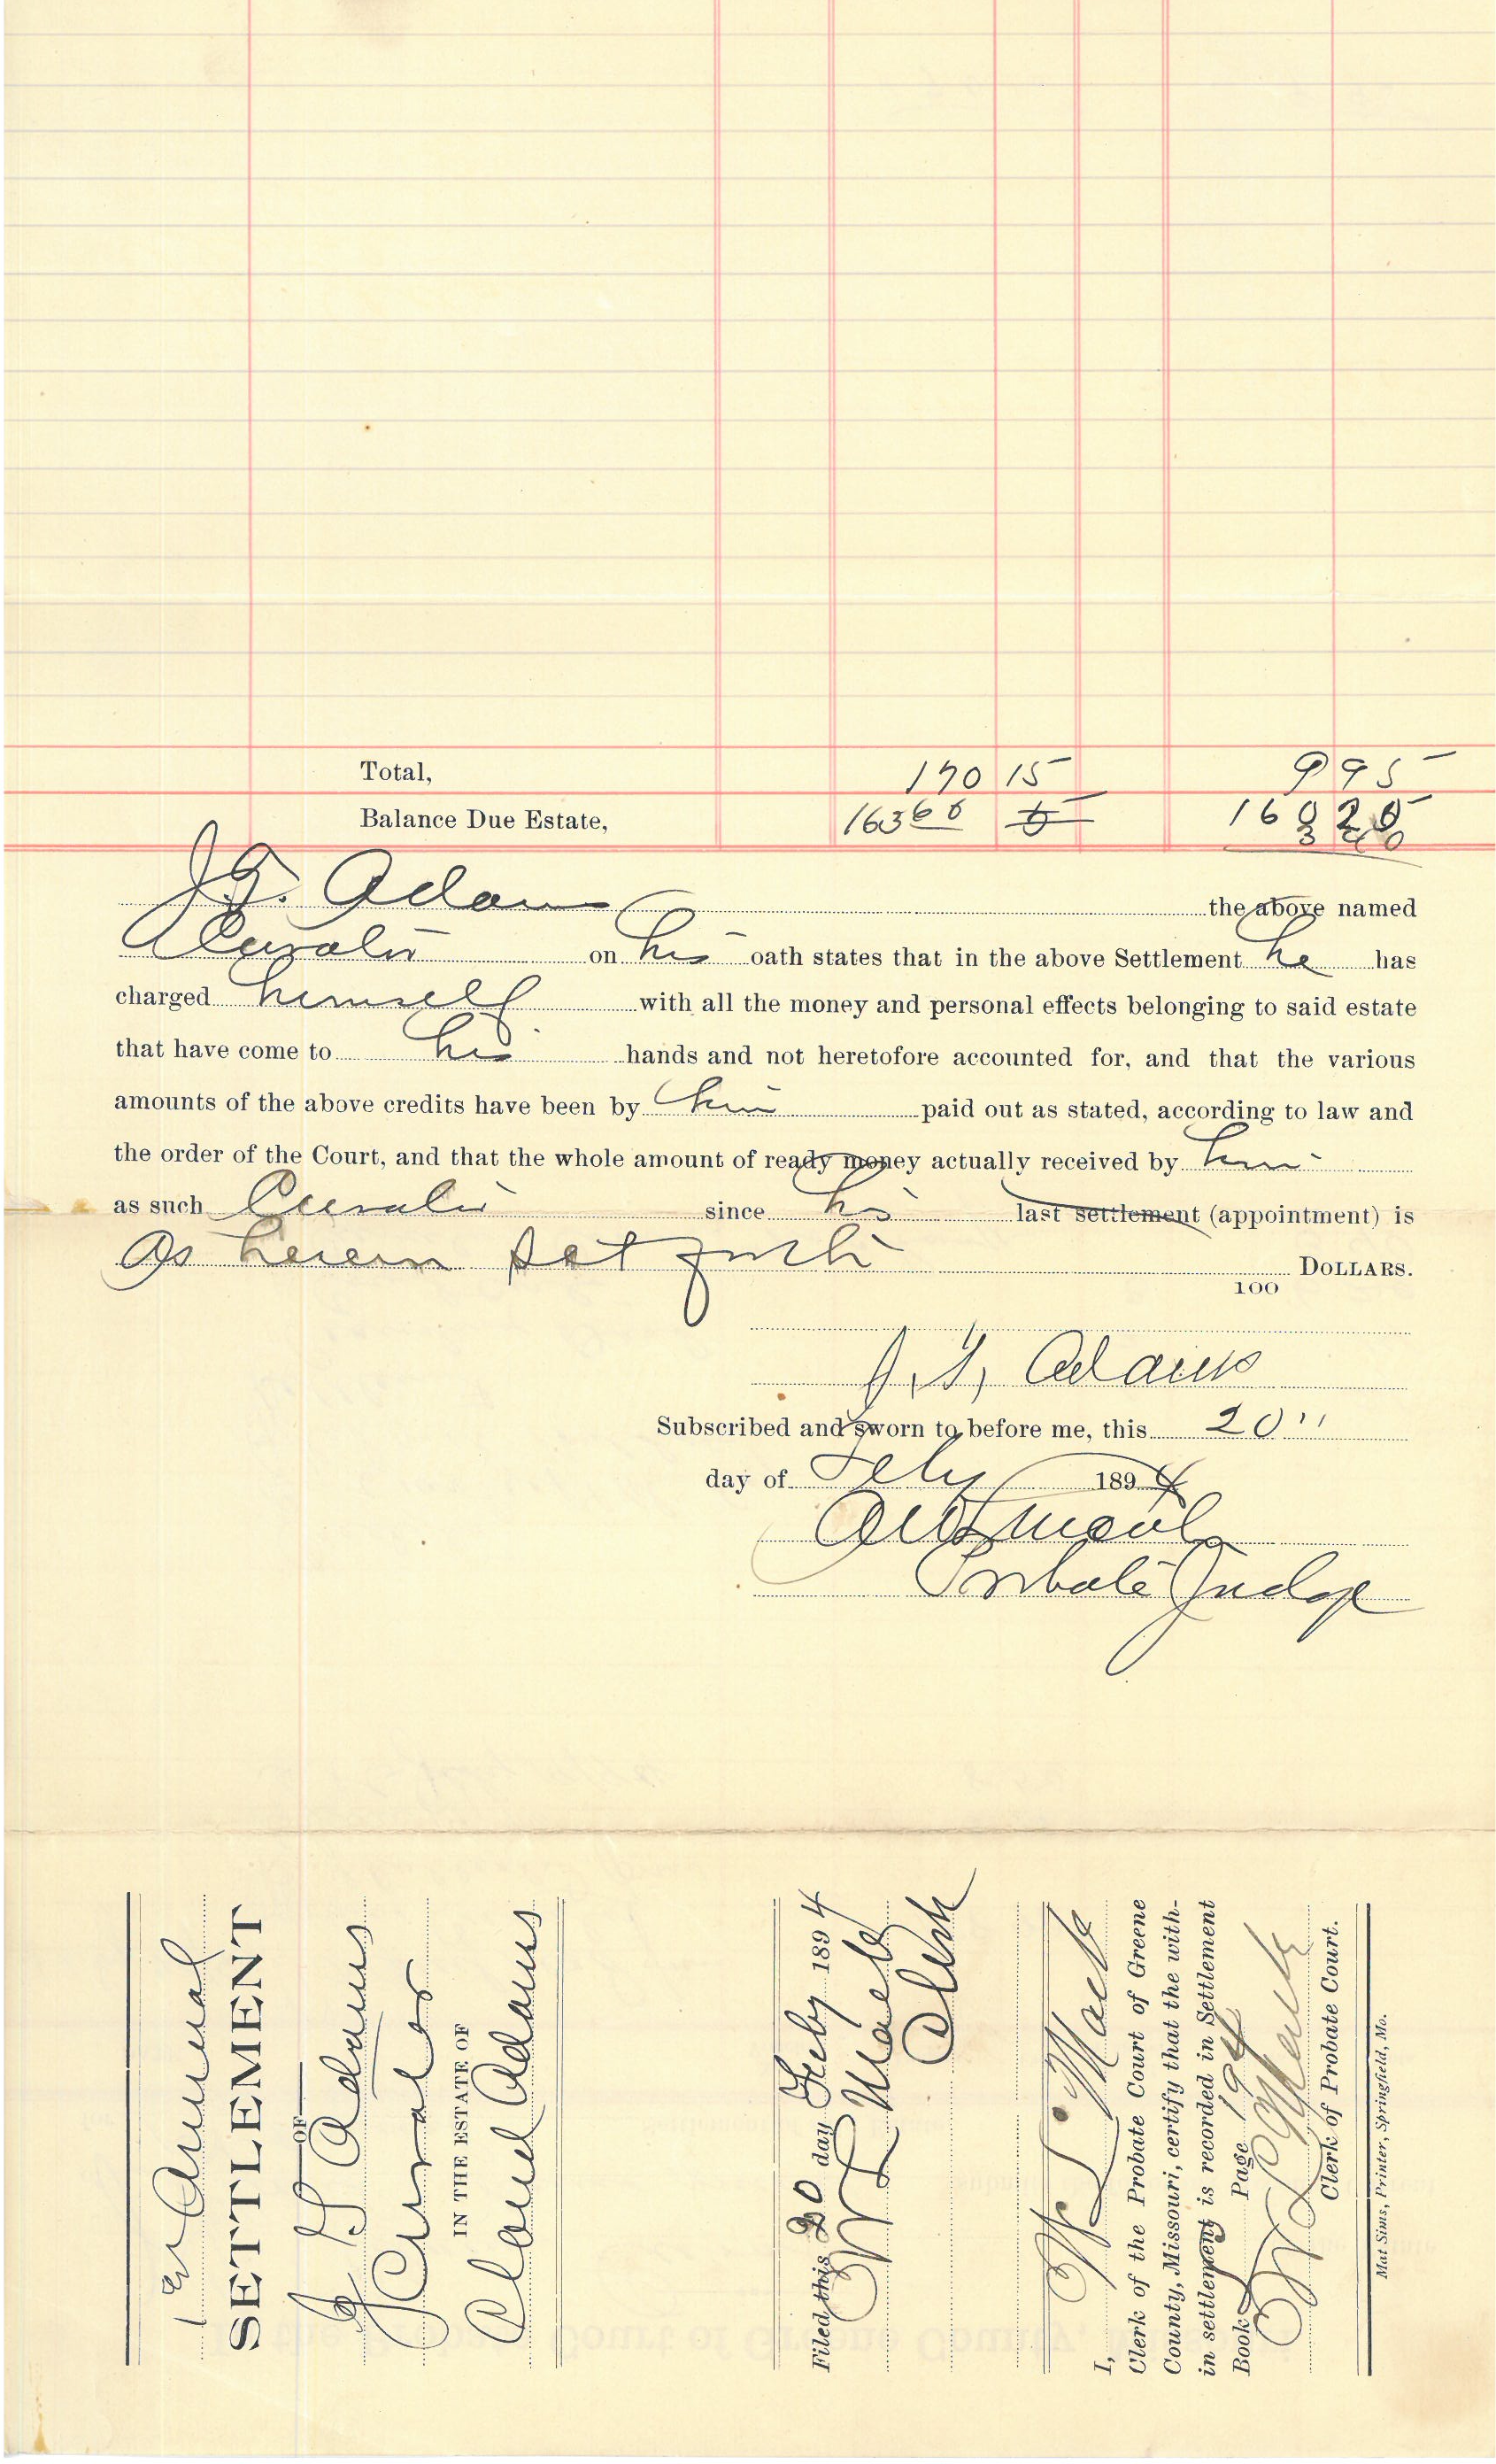 Total, 170 15 9 95
Balance Due Estate, 163 60
J. G. Adams the above named
Curator on his oath states that in the above Settlement he has
charged himself with all the money and personal effects belonging to said estate
that have come to his hands and not heretofore accounted for, and that the various
amounts of the above credits have been by him paid out as stated, according to law and
the order of the Court, and that the whole amount of ready money actually received by him
as such Curator since his last settlement (appointment) is
As herein set forth DOLLARS.
100
J. G. Adams
Subscribed and sworn to before me, this 20"
day of Feby 1894
Probate Judge
1st Annual
SETTLEMENT
OF
J G Adams
Curator
IN THE ESTATE OF
Claud Adams
Filed this 20 day Feby 1894
Clerk
I,
Clerk of the Probate Court of Greene
County, Missouri, certify that the with-
in settlement is recorded in Settlement
Book Page 194
Clerk of Probate Court.
Mat Sims, Printer, Springfield, Mo.